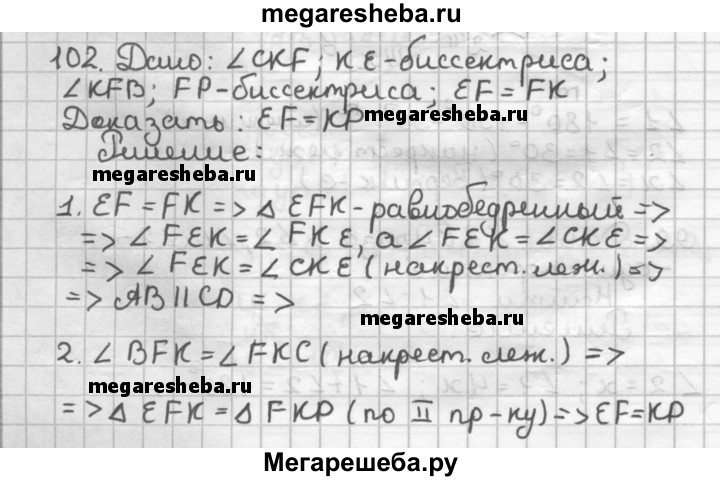 megaresheba.ru
102. Дано: ∠CKF; KE-биссектриса;
∠KFB; FP-биссектриса; EF = FK
Доказать: EF=KP
megaresheba.ru
Решение:
megaresheba.ru
1. EF = FK => Δ EFK - равнобедренный =>
=> ∠ FEK = ∠ FKE, а ∠ FEK = ∠CKE =>
=> ∠ FEK = ∠ CKE (накрест. леж.) =>
=> AB || CD =>
megaresheba.ru
2. ∠ BFK = ∠ FKC (накрест. леж.) =>
megaresheba.ru
=> Δ EFK = Δ FKP (по II пр-ку) => EF=KP
Мегарешеба.ру